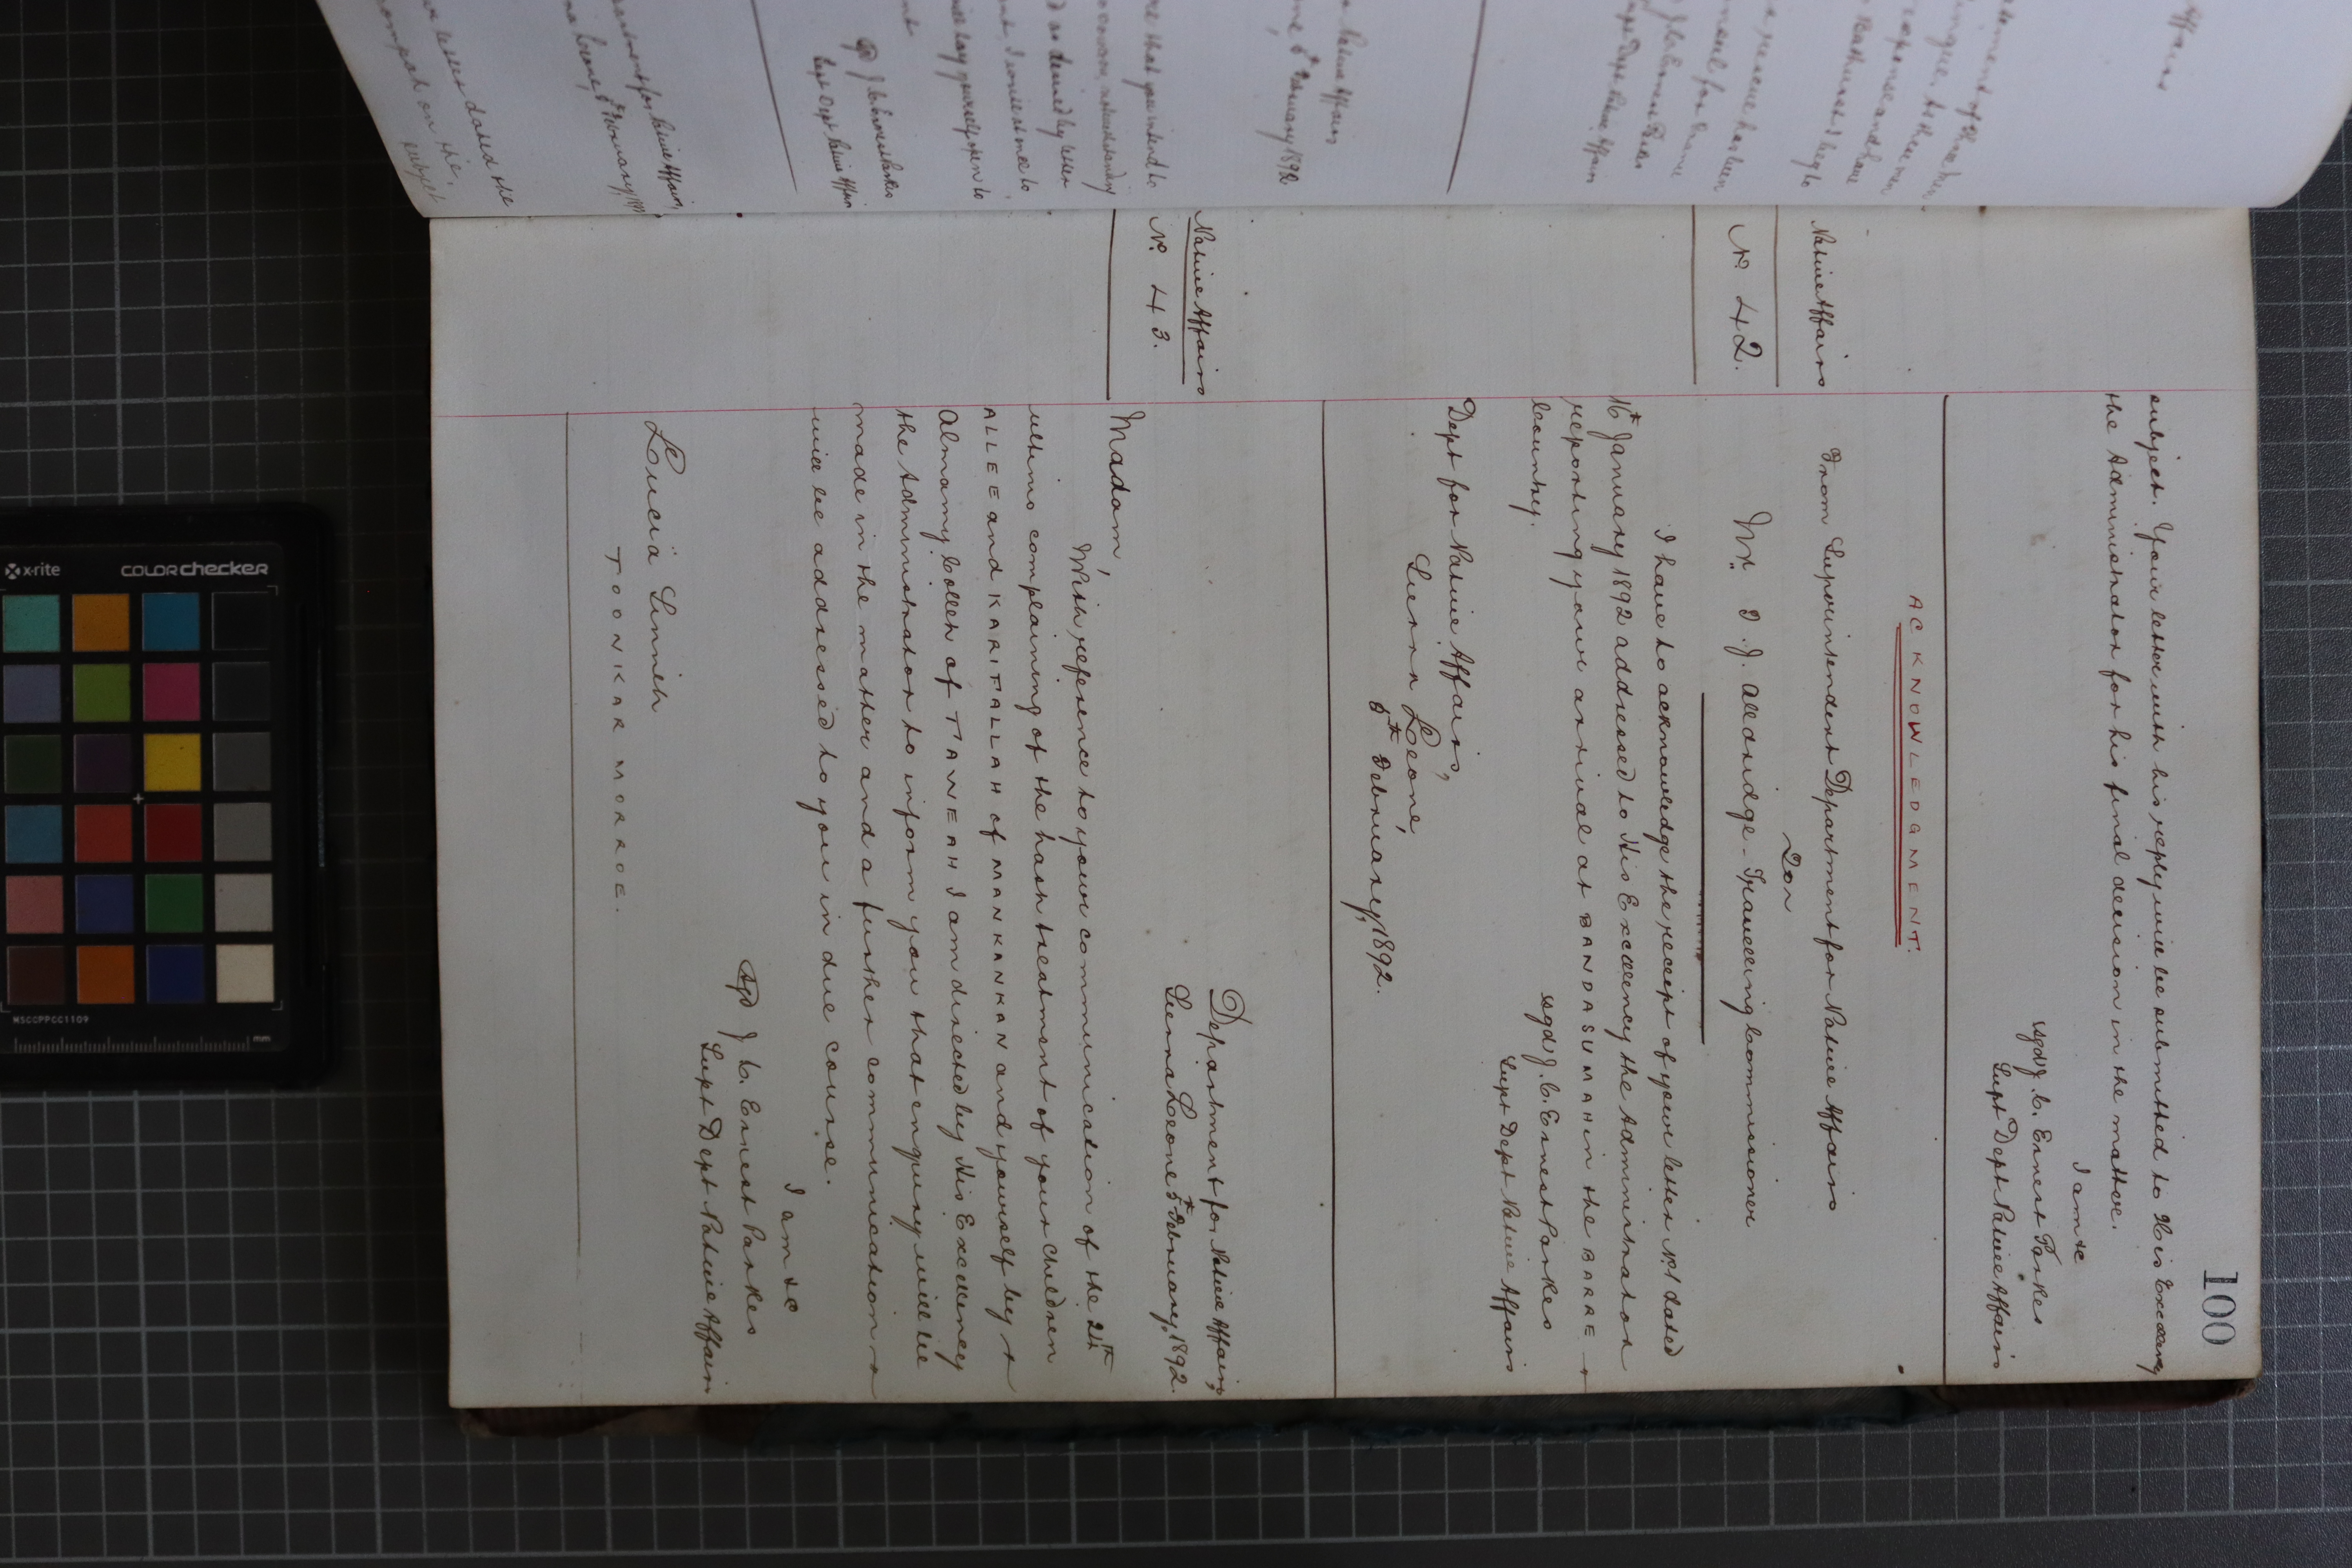 100
subject. Your letter with his reply will be submitted to His Excellency
the Administrator for his final decision in the matter.
I am &c
sgd J. C. Ernest Parkes
Supt Dept Native Affairs
ACKNOWLEDGMENT.
Native Affairs
No. 42.
From Superintendent Department for Native Affairs
To
Mr. T. J. Alldridge - Travelling Commissioner
I have to acknowledge the receipt of your letter No 1 dated
16th January 1892 addressed to His Excellency the Administrator
reporting your arrival at BANDASUMAH in the BARRE
Country.
sgd J. C. Ernest Parkes
Supt Dept Native Affairs
Dept for Native Affairs,
Sierra Leone,
5th February, 1892.
Native Affairs
No. 43.
Department for Native Affairs,
Sierra Leone 5th February, 1892.
Madam,
With reference to your communication of the 24th
ultimo complaining of the harsh treatment of your children
ALLEE and KARIFALLAH of MANKANKAN and yourself by
Almamy Colleh of TAWEAH I am directed by His Excellency
the Administrator to inform you that enquiry will be
made in the matter and a further communication
will be addressed to you in due course.
I am &c
sgd J. C. Ernest Parkes
Supt Dept Native Affairs
Lucia Sinneh
TOONKAR MORROE.
Native Affairs
5th February 1892
that you intend to
notwithstanding
as desired by letter
lay yourself open to
sgd J. C. Ernest Parkes
Supt Dept Native Affairs
letter dated the
on the
subject
x-rite
COLORchecker
MSCCPPCC1109
mm